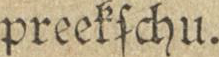 preekſchu.